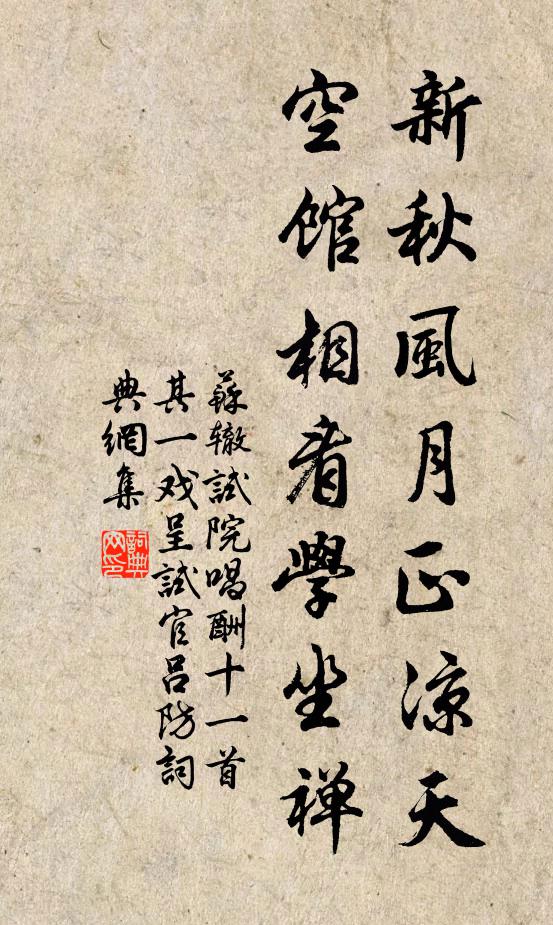 新秋風月正涼天
空館相看學坐禅
蘇辙試院唱酬十一首
其一戏呈試官呂防詞
典網集
詞典
网印